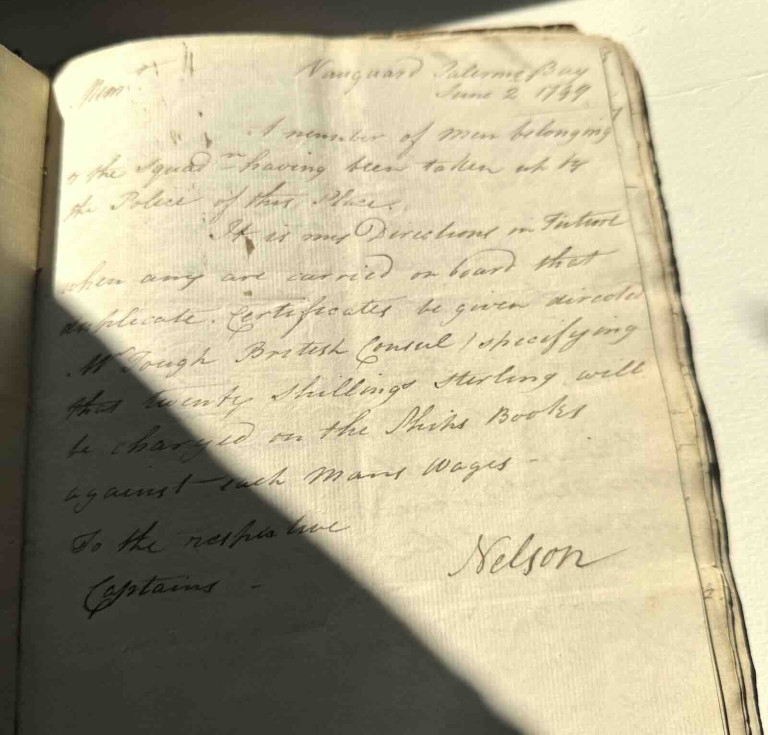 Mem
Vanguard Palermo Bay
June 2 1799
A number of men belonging
to the Squadn having been taken up by
the Police of this Place.
It is my Directions in Future
when any are carried on board that
duplicate Certificates be given directed
Mr Tough British Consul / specifying
that twenty Shillings Sterling will
be charged on the Ships Books
against each Mans Wages -
To the respective
Captains -
Nelson